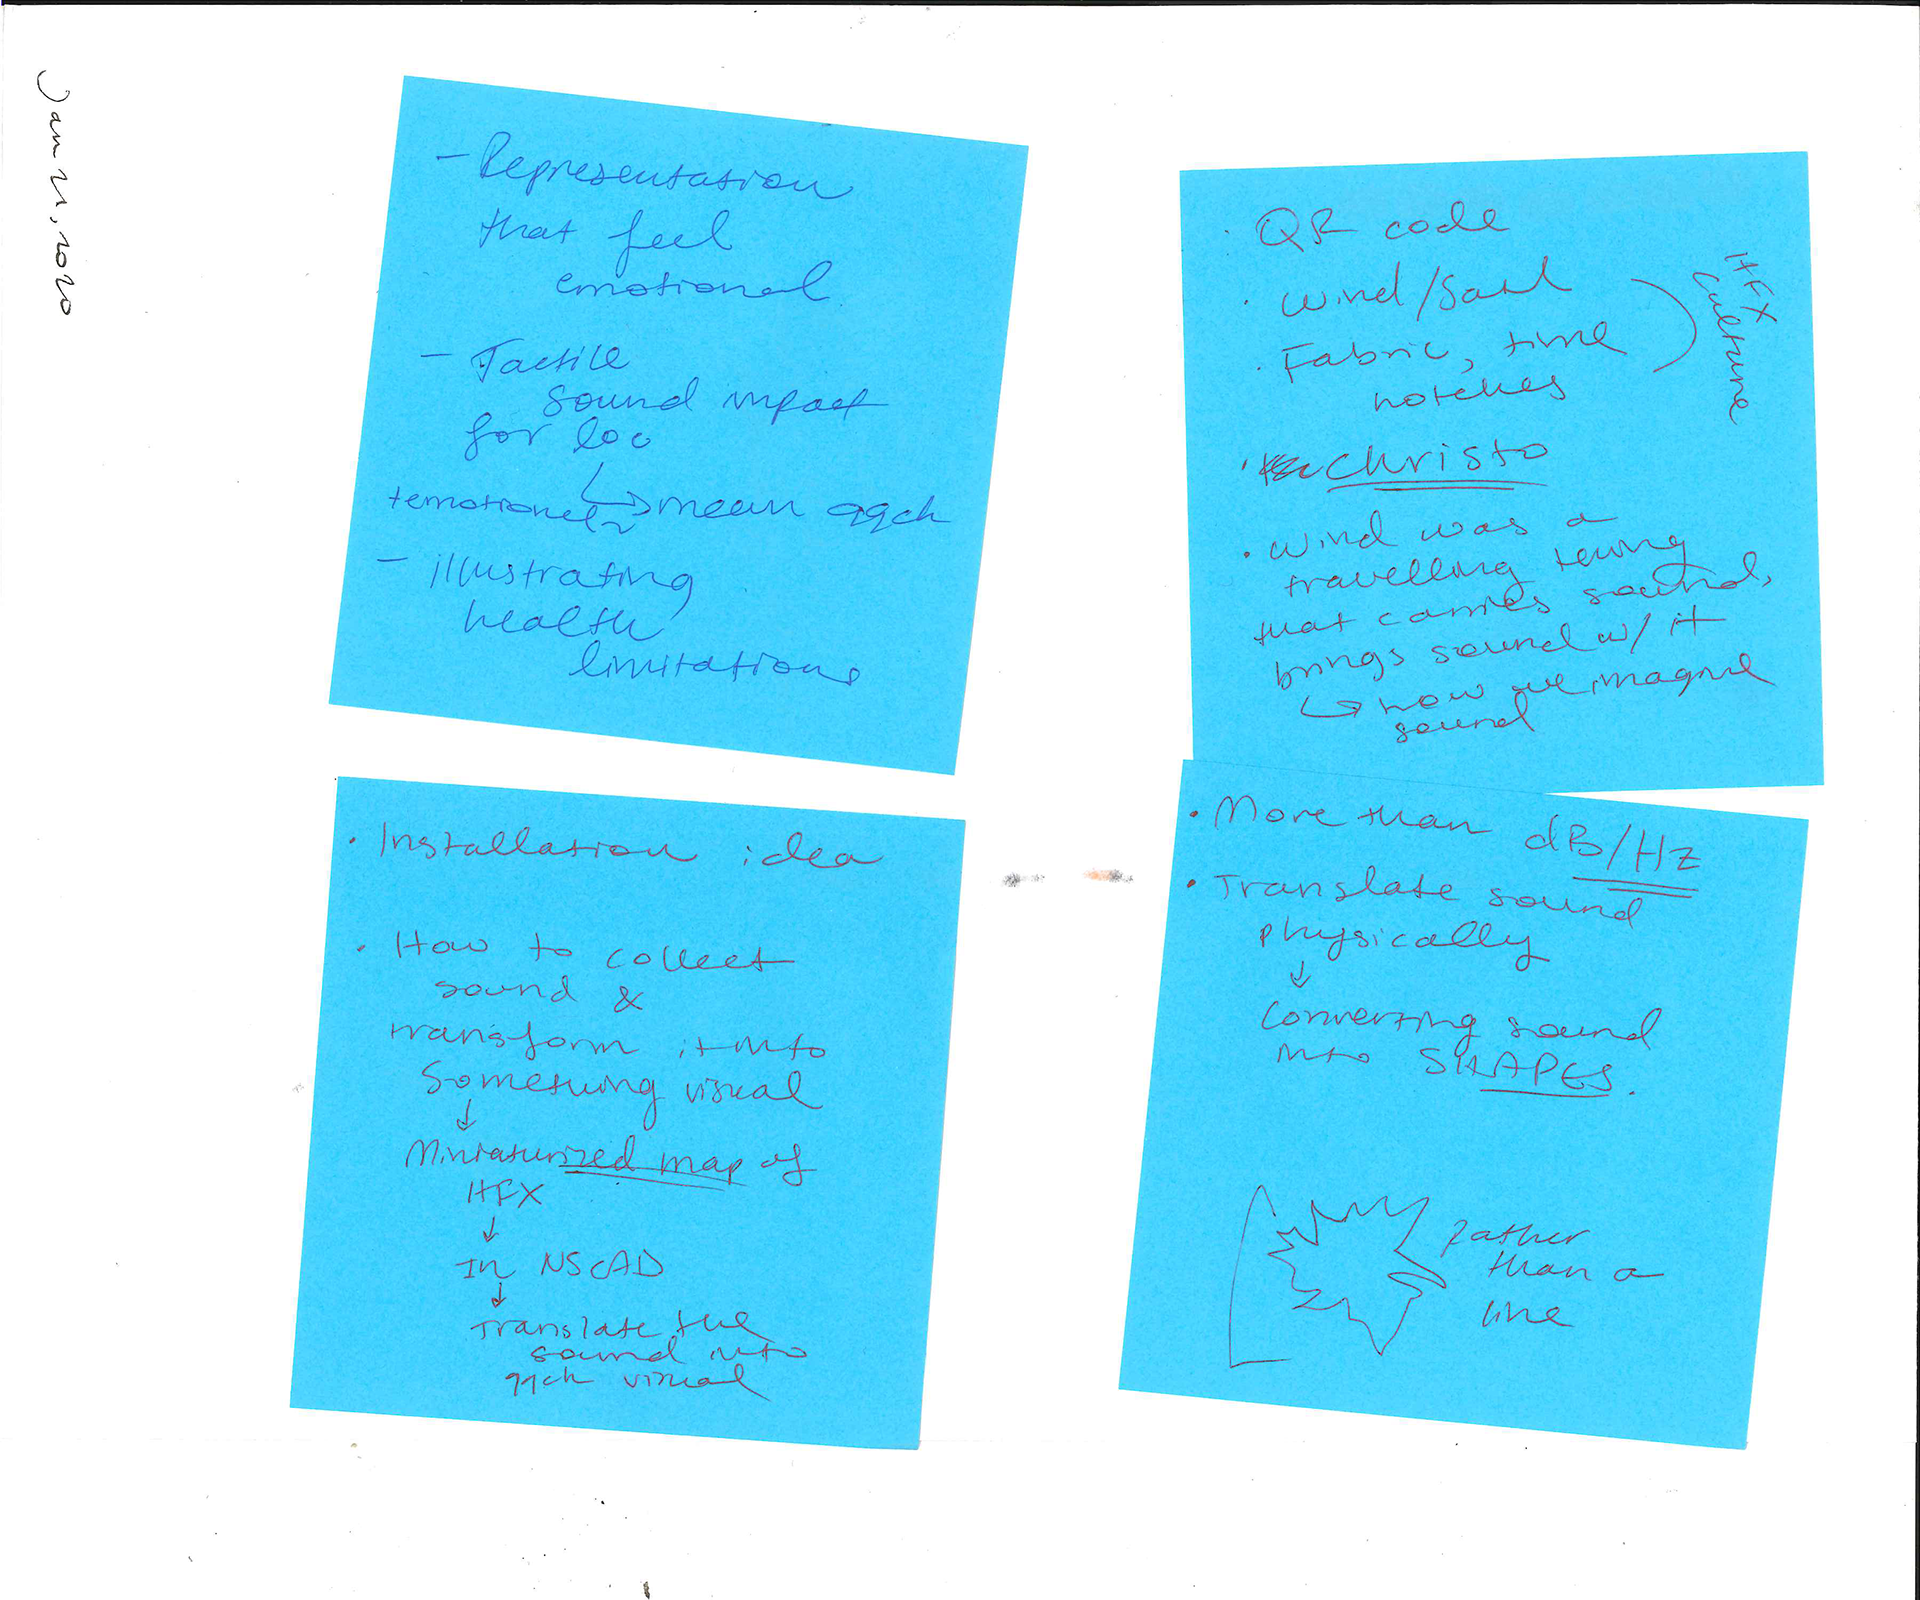 Jan 21, 2020
- Representation
that feel
emotional
- Tactile
sound impact
for loc
↳ mean qqch
+emotionel
- illustrating
health
limitations
· QR code
· Wind/Sail
· Fabric, time
notches
HFX
culture
· Christo
· Wind was a
travelling thing
that carries sound,
brings sound w/ it
↳ how we imagine
sound
· Installation idea
· How to collect
sound &
transform it into
something visual
↓
Miniaturized map of
HFX
↓
In NSCAD
↓
Translate the
sound into
qqch visual
· More than dB/Hz
· Translate sound
physically
↓
Converting sound
into SHAPES.
rather
than a
line